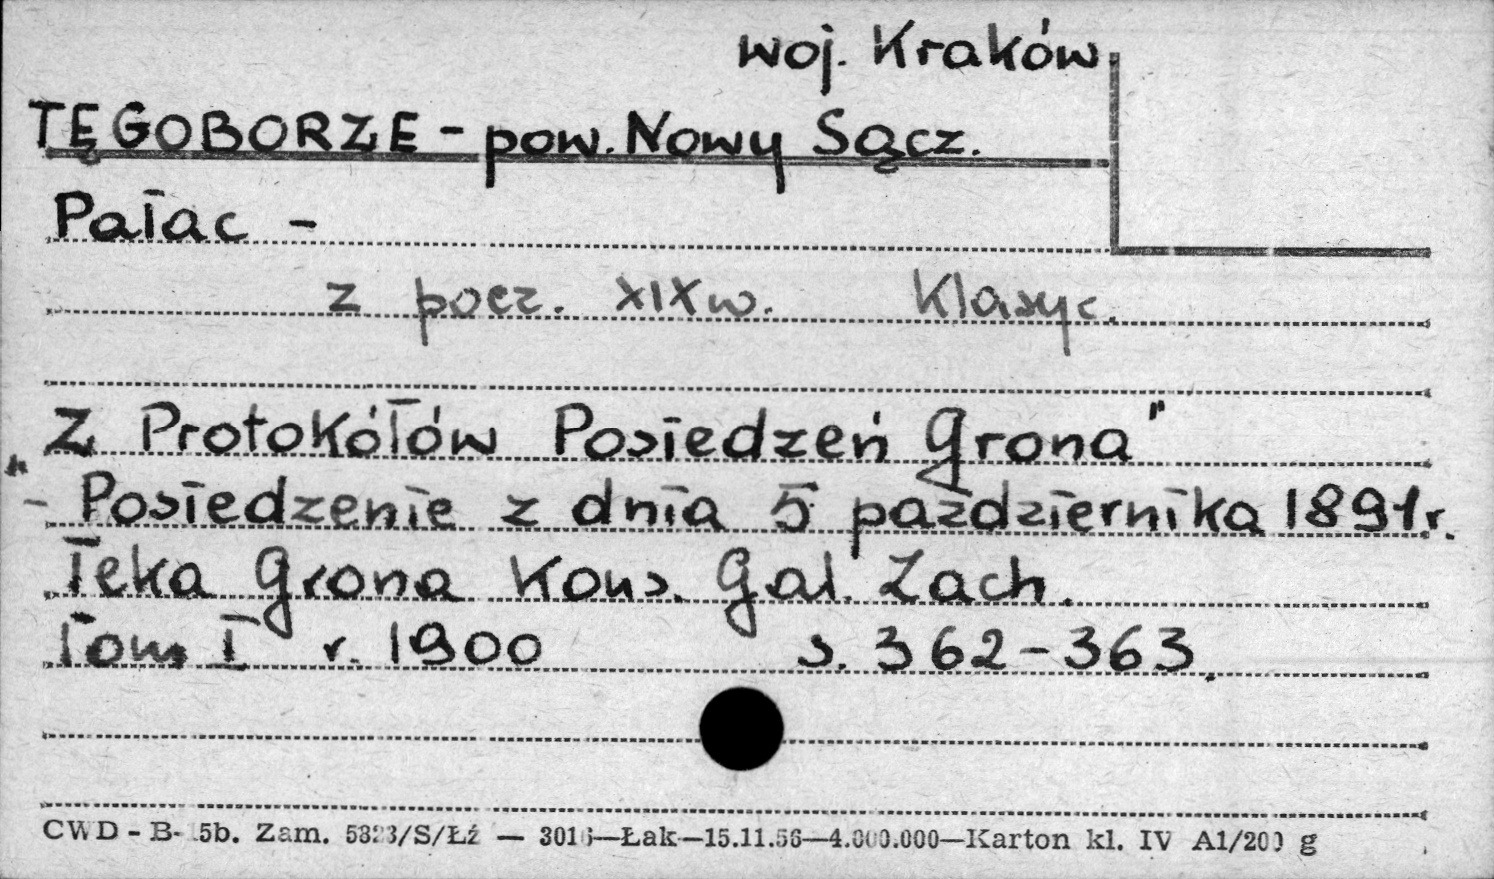 woj. Kraków
TĘGOBORZE - pow. Nowy Sącz.
Pałac -
z pocz. XIX w. Klasyc.
Z Protokółów Posiedzeń Grona"
"- Posiedzenie z dnia 5 października 1891 r.
Teka Grona Kons. Gal. Zach.
Tom I r. 1900 s. 362-363.
CWD - B- 5b. Zam. 5323/S/Łź — 3016—Łak—15.11.56—4.000.000—Karton kl. IV A1/200 g